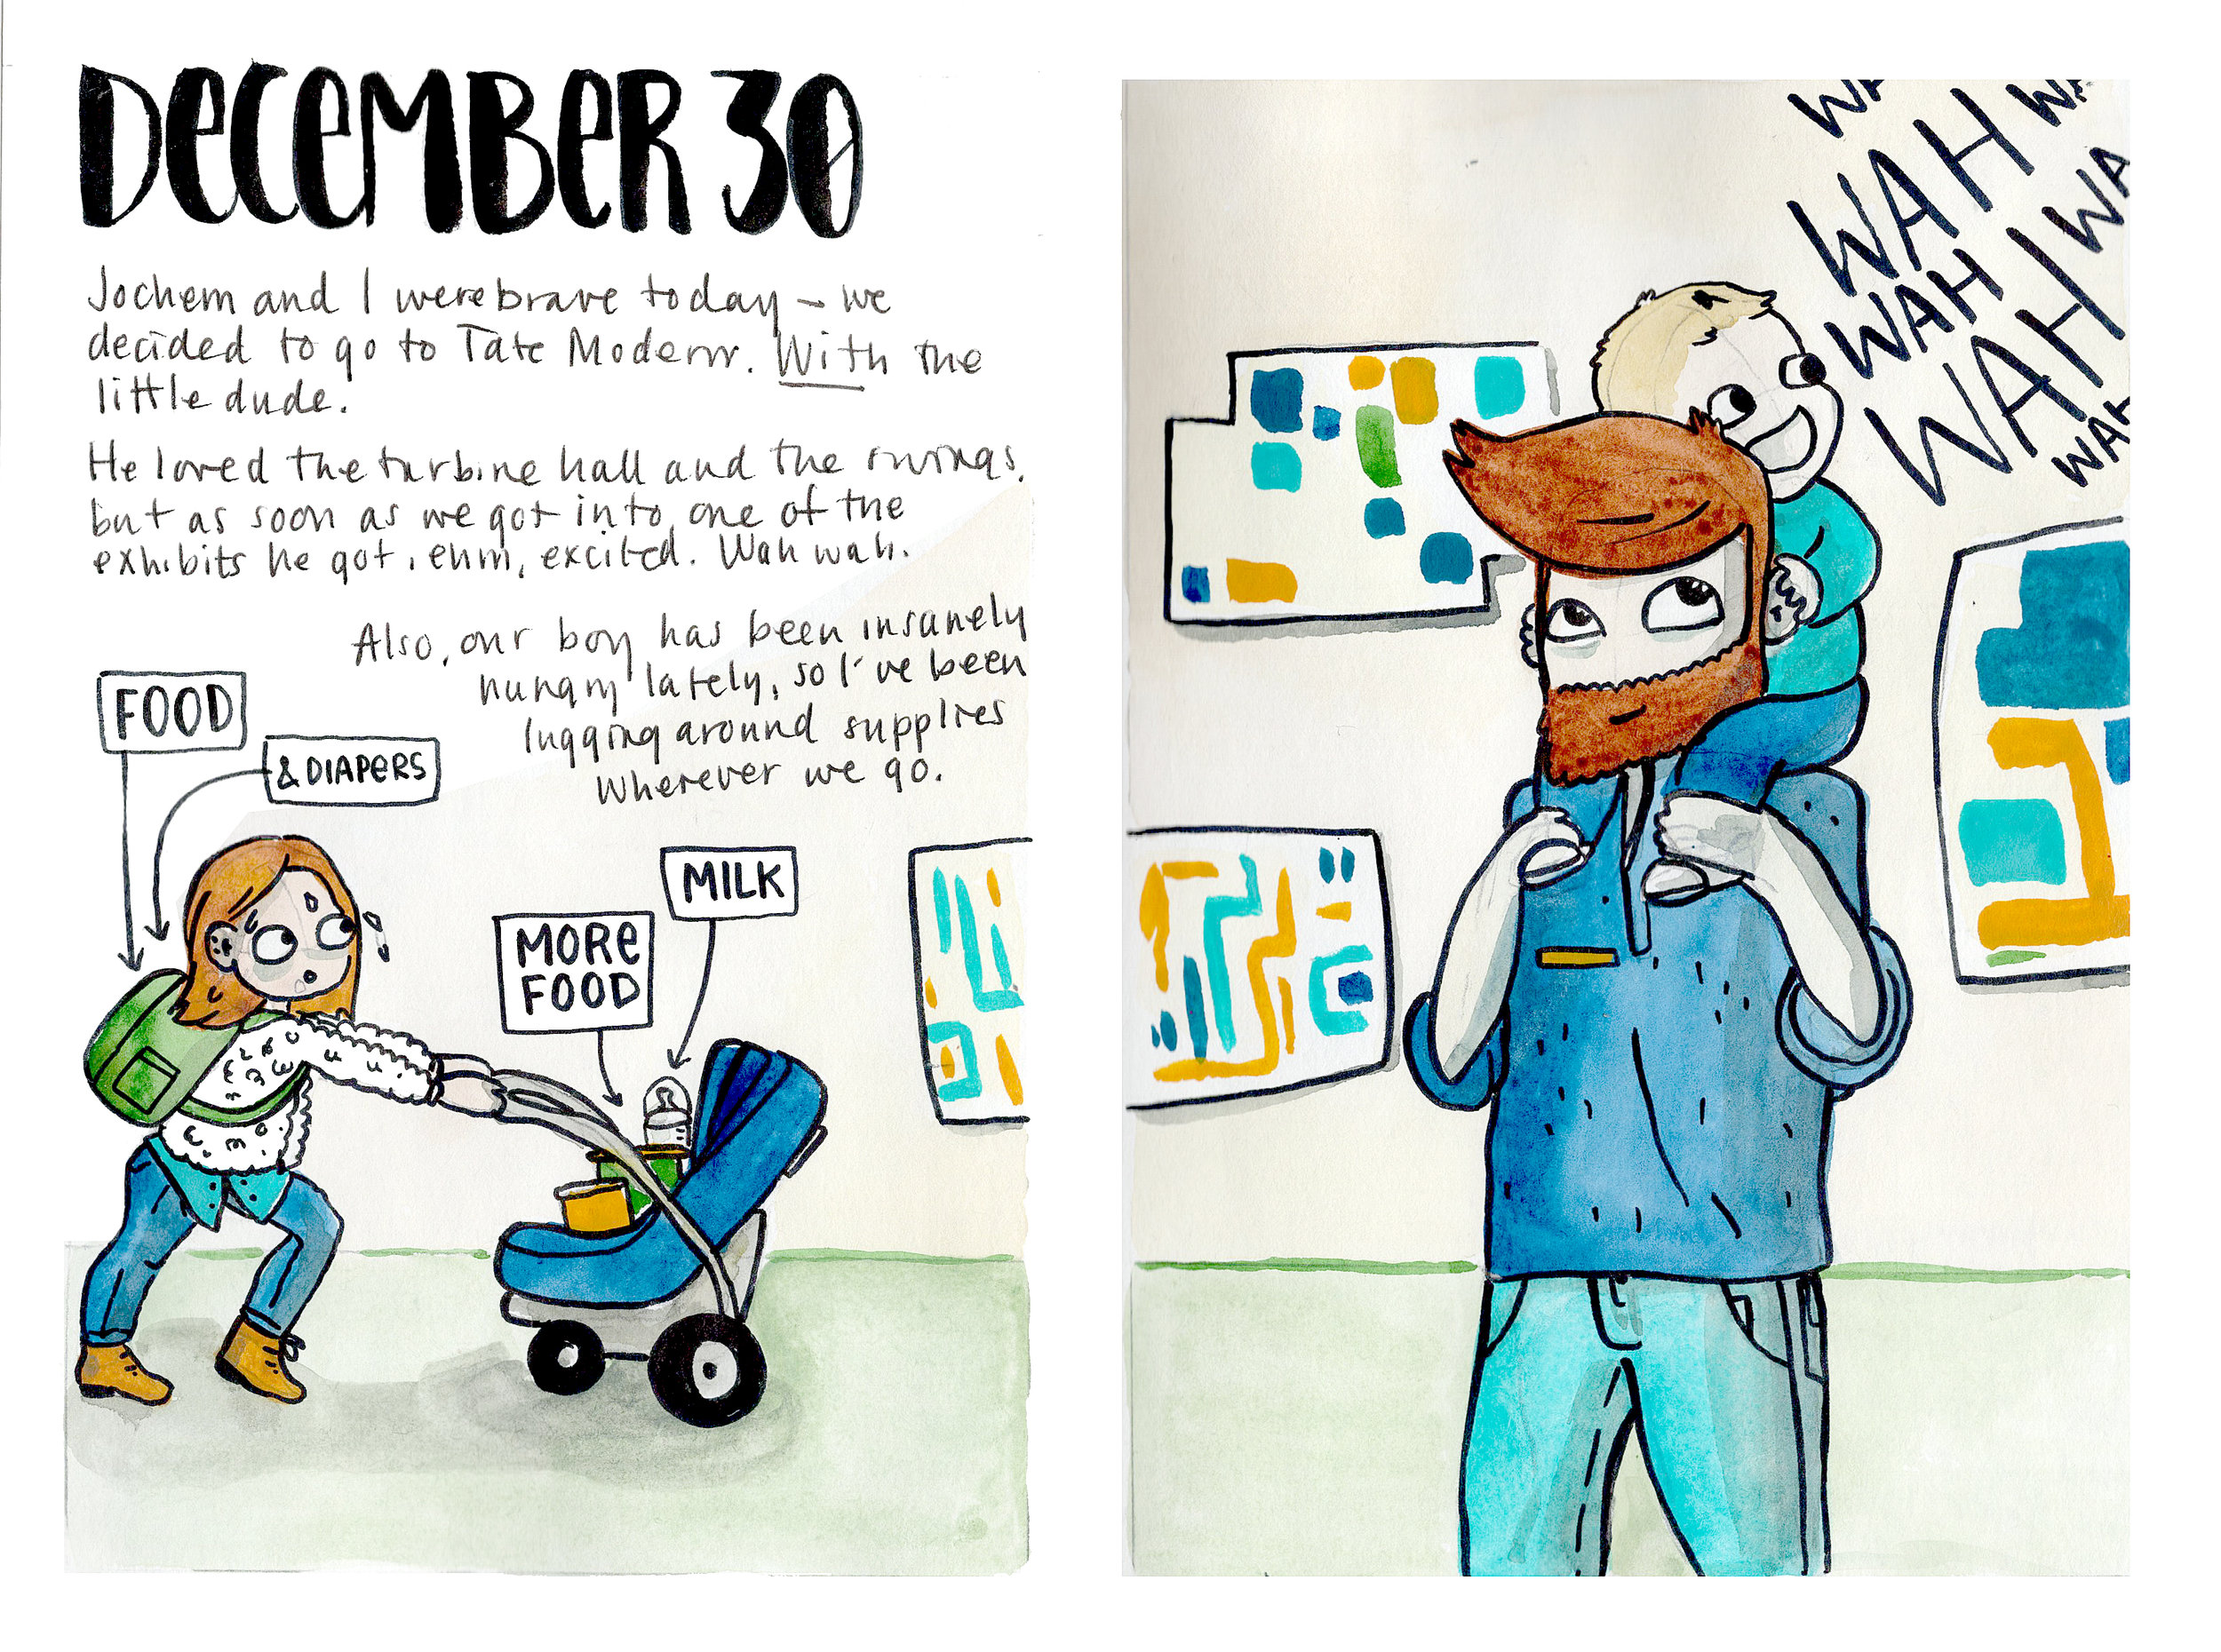 DECEMBER 30
Jochem and I were brave today – we
decided to go to Tate Modern. With the
little dude.
He loved the turbine hall and the swings,
but as soon as we got into one of the
exhibits he got, ehm, excited. Wah wah.
Also, our boy has been insanely
hungry lately, so I've been
lugging around supplies
wherever we go.
FOOD
& DIAPERS
MILK
MORE
FOOD
WA
WA
WAH
WA
WAH
WAH
WAH